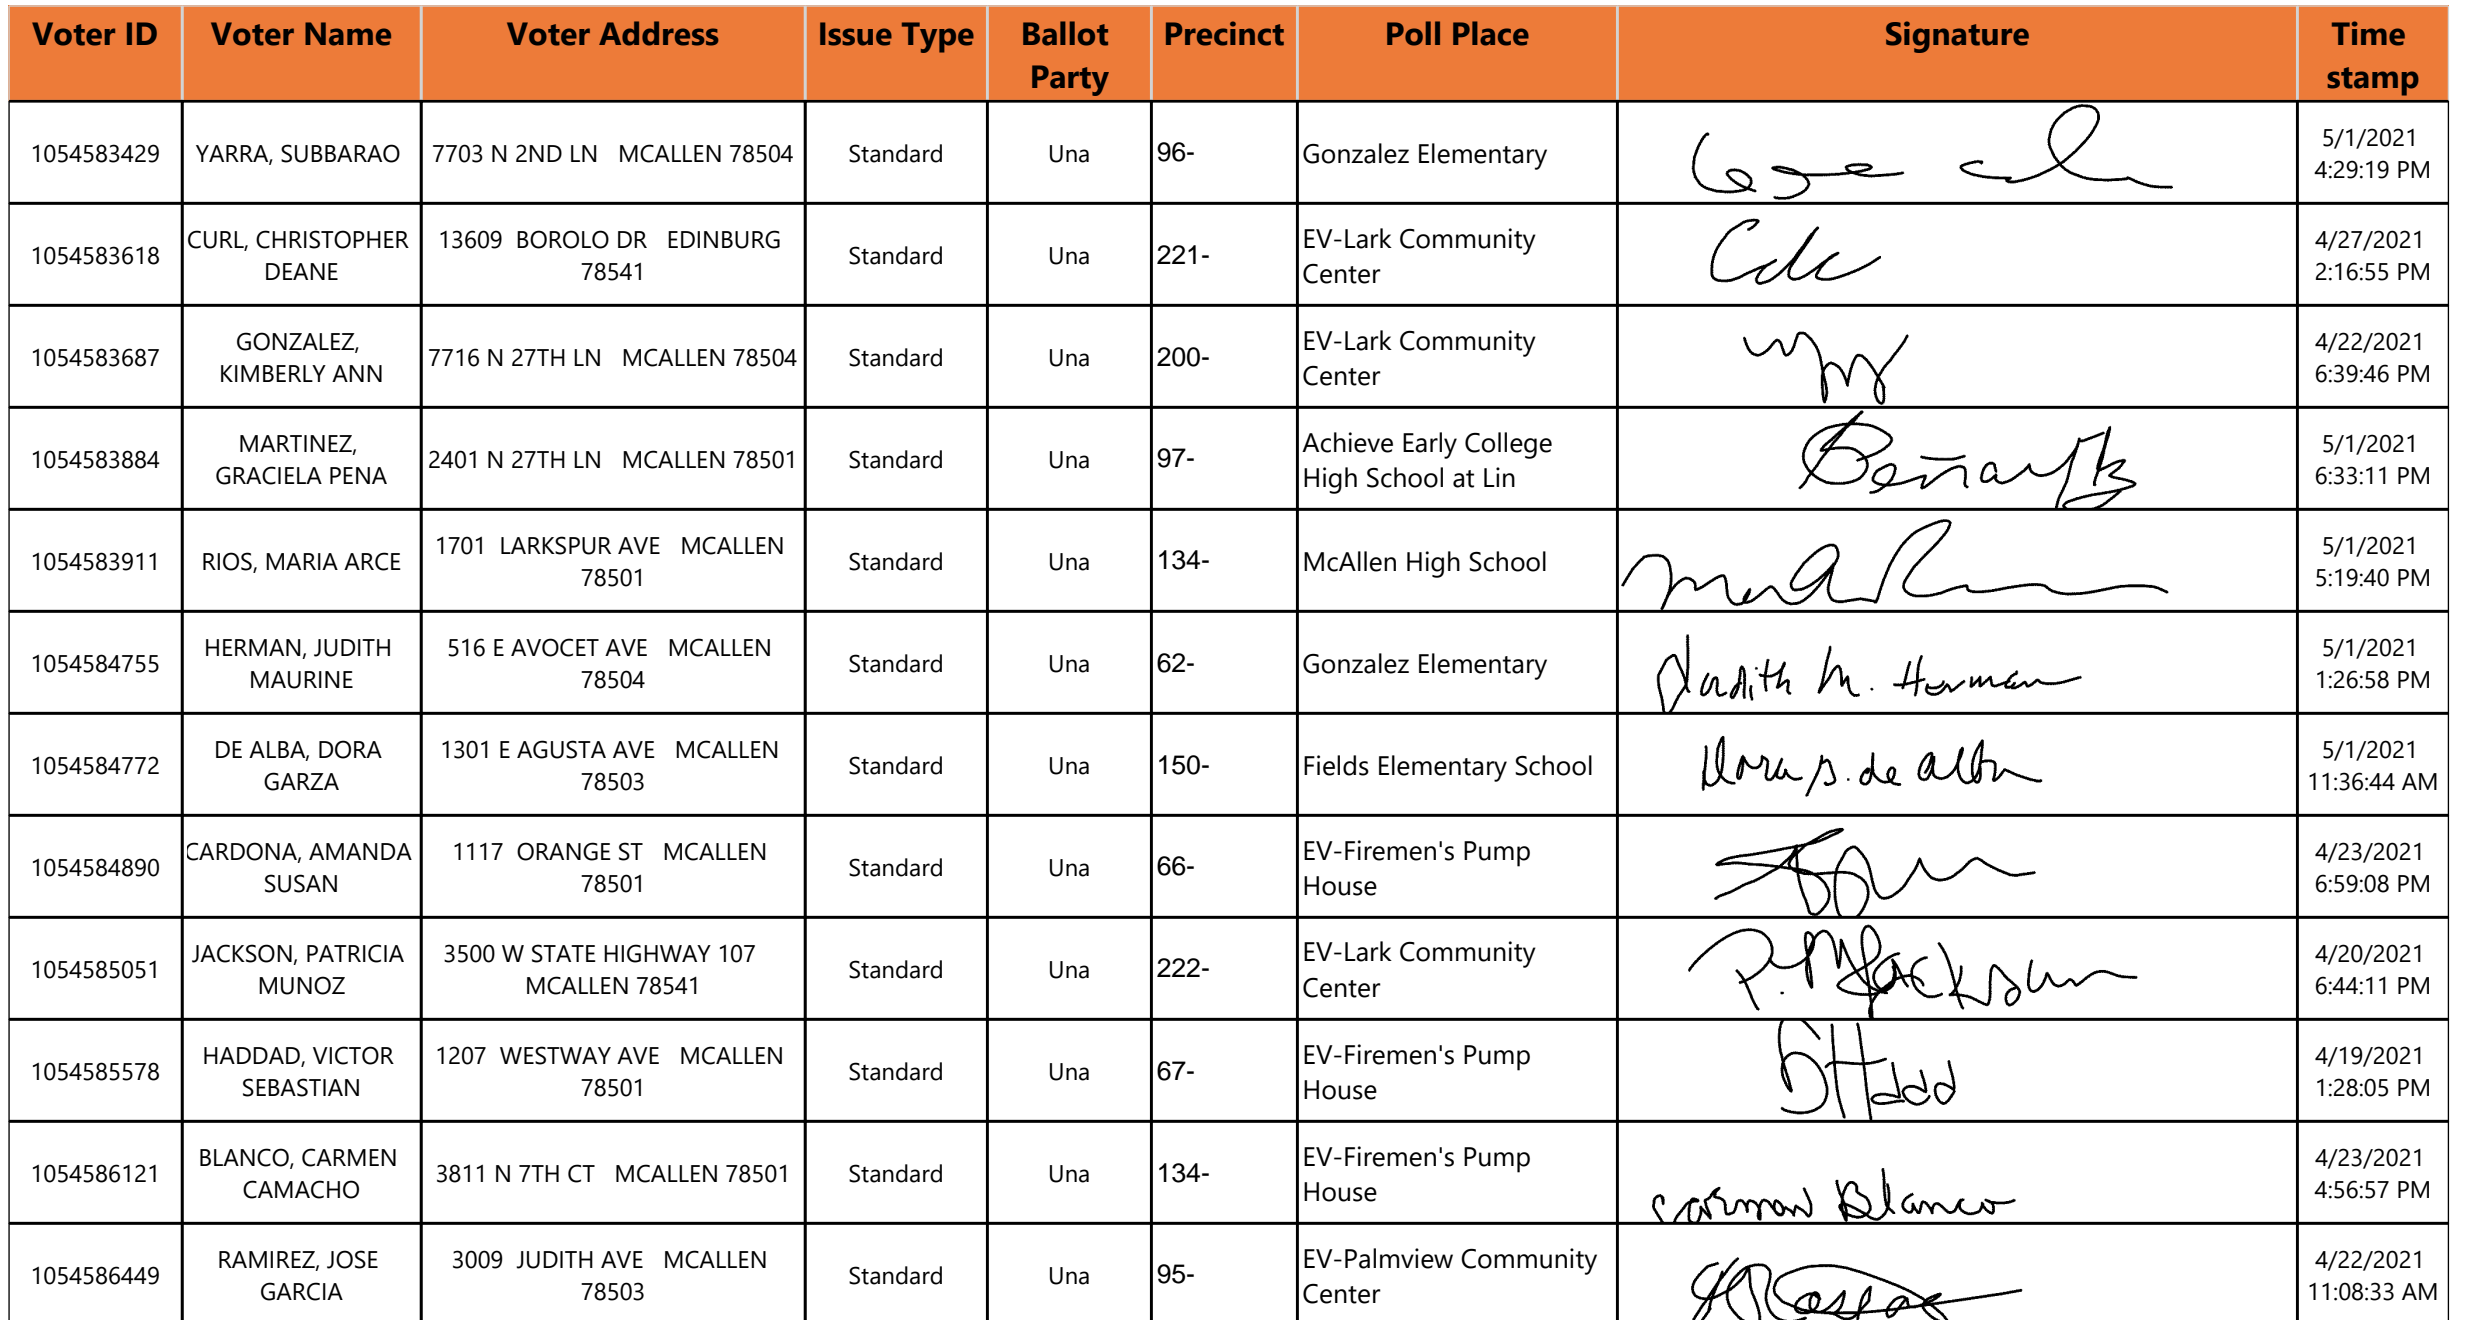 Voter ID Voter Name Voter Address Issue Type Ballot Party Precinct Poll Place Signature Time stamp
1054583429 YARRA, SUBBARAO 7703 N 2ND LN MCALLEN 78504 Standard Una 96- Gonzalez Elementary 5/1/2021 4:29:19 PM
1054583618 CURL, CHRISTOPHER DEANE 13609 BOROLO DR EDINBURG 78541 Standard Una 221- EV-Lark Community Center Cdc 4/27/2021 2:16:55 PM
1054583687 GONZALEZ, KIMBERLY ANN 7716 N 27TH LN MCALLEN 78504 Standard Una 200- EV-Lark Community Center 4/22/2021 6:39:46 PM
1054583884 MARTINEZ, GRACIELA PENA 2401 N 27TH LN MCALLEN 78501 Standard Una 97- Achieve Early College High School at Lin 5/1/2021 6:33:11 PM
1054583911 RIOS, MARIA ARCE 1701 LARKSPUR AVE MCALLEN 78501 Standard Una 134- McAllen High School 5/1/2021 5:19:40 PM
1054584755 HERMAN, JUDITH MAURINE 516 E AVOCET AVE MCALLEN 78504 Standard Una 62- Gonzalez Elementary Judith M. Herman 5/1/2021 1:26:58 PM
1054584772 DE ALBA, DORA GARZA 1301 E AGUSTA AVE MCALLEN 78503 Standard Una 150- Fields Elementary School Dora G. de Alba 5/1/2021 11:36:44 AM
1054584890 CARDONA, AMANDA SUSAN 1117 ORANGE ST MCALLEN 78501 Standard Una 66- EV-Firemen's Pump House 4/23/2021 6:59:08 PM
1054585051 JACKSON, PATRICIA MUNOZ 3500 W STATE HIGHWAY 107 MCALLEN 78541 Standard Una 222- EV-Lark Community Center P. M Jackson 4/20/2021 6:44:11 PM
1054585578 HADDAD, VICTOR SEBASTIAN 1207 WESTWAY AVE MCALLEN 78501 Standard Una 67- EV-Firemen's Pump House 4/19/2021 1:28:05 PM
1054586121 BLANCO, CARMEN CAMACHO 3811 N 7TH CT MCALLEN 78501 Standard Una 134- EV-Firemen's Pump House Carmen Blanco 4/23/2021 4:56:57 PM
1054586449 RAMIREZ, JOSE GARCIA 3009 JUDITH AVE MCALLEN 78503 Standard Una 95- EV-Palmview Community Center 4/22/2021 11:08:33 AM